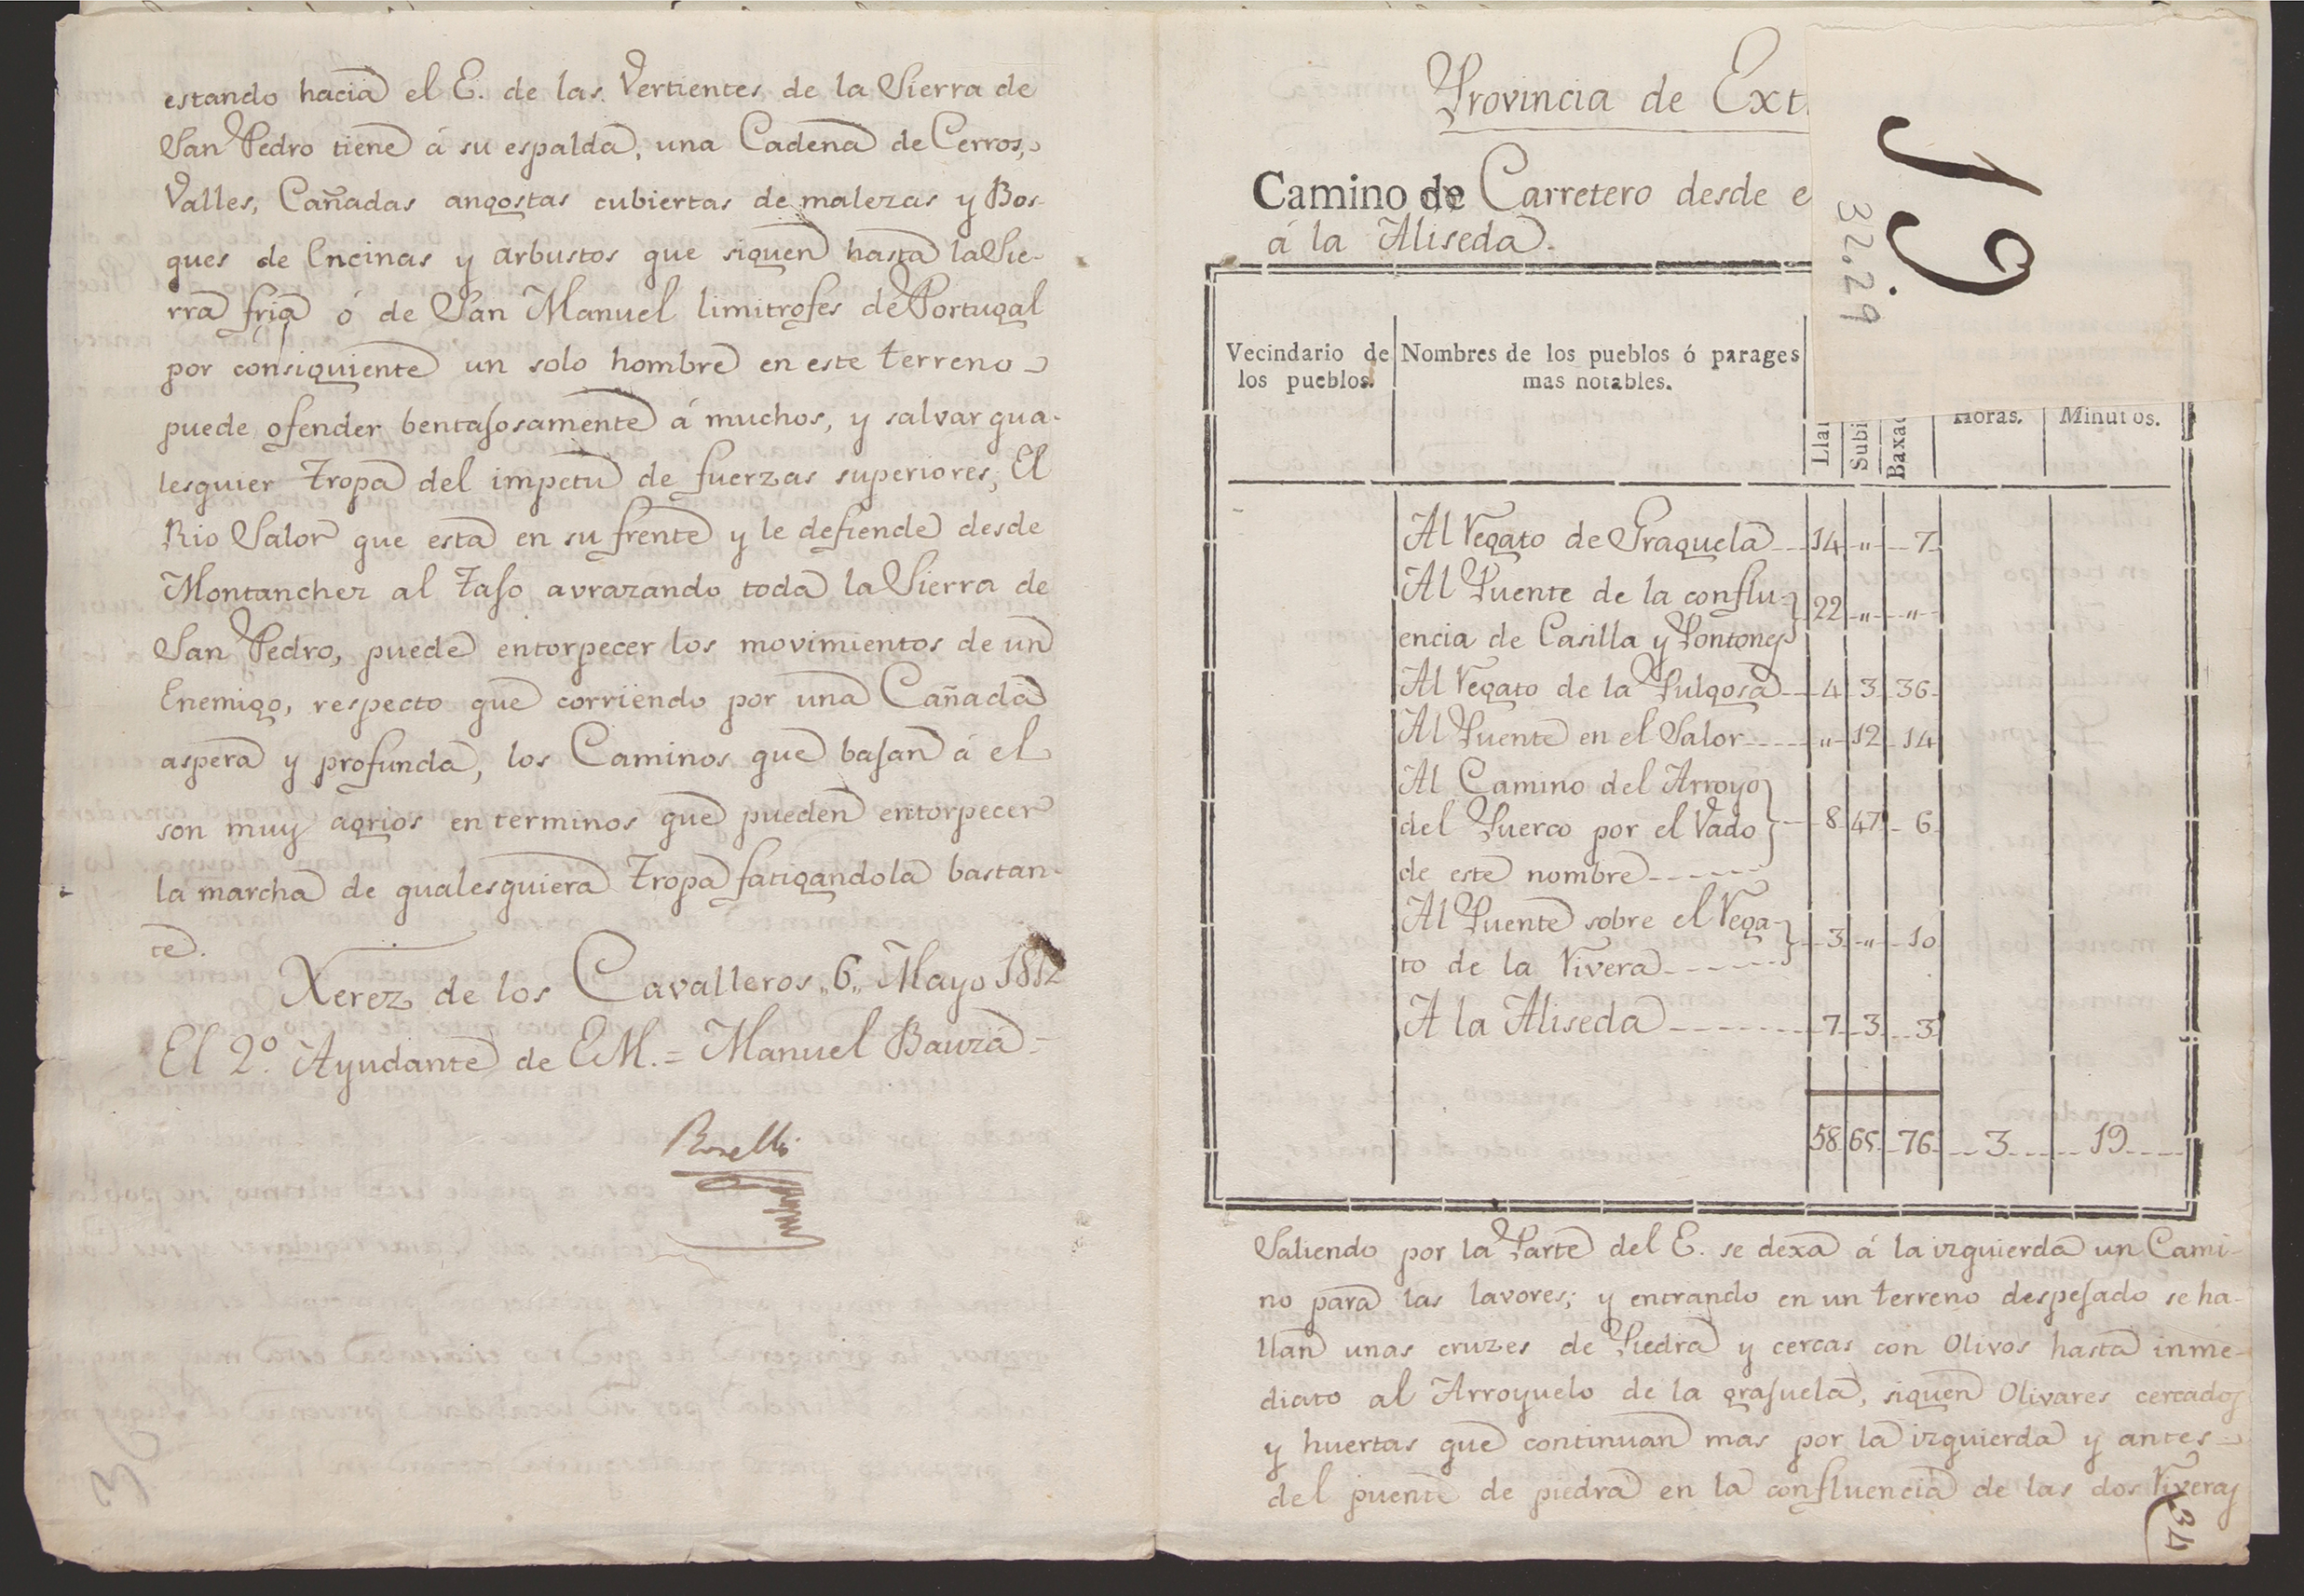 estando hacia el E. de las Vertientes de la Sierra de
San Pedro tiene á su espalda, una Cadena de Cerros,
Valles, Cañadas angostas cubiertas de malezas y Bos-
ques de Encinas y arbustos que siguen hasta la Sie-
rra fria ó de San Manuel limitrofes de Portugal
por consiguiente un solo hombre en este terreno
puede ofender bentajosamente á muchos, y salvar qua-
lesquier tropa del impetu de fuerzas superiores, El
Rio Salor que está en su frente y le defiende desde
Montanchez al Tajo avrazando toda la Sierra de
San Pedro, puede entorpecer los movimientos de un
Enemigo, respecto que corriendo por una Cañada
aspera y profunda, los Caminos que bajan á el
son muy agrios en terminos que pueden entorpecer
la marcha de qualesquiera tropa fatigandola bastan-
te.
Xerez de los Cavalleros „6„ Mayo 1812
El 2º. Ayudante de E.M. = Manuel Bauzá =
Roselló
Provincia de Ext
Camino de Carretero desde e
á la Aliseda.
19
32.29
Vecindario de los pueblos.
Nombres de los pueblos ó parages mas notables.
Llan
Subi
Baxad
Horas.
Minutos.
Al Regato de Graguela 14 „ 7
Al Puente de la conflu-
encia de Casilla y Pontones 22 „ „
Al Regato de la Pulgosa 4 3 36
Al Puente en el Salor „ 12 14
Al Camino del Arroyo
del Puerco por el Vado 8 47 6
de este nombre
Al Puente sobre el Rega-
to de la Rivera 3 „ 10
A la Aliseda 7 3 3
58 65 76 3 19
Saliendo por la Parte del E. se dexa á la izquierda un Cami-
no para las lavores; y entrando en un terreno despejado se ha-
llan unas cruzes de Piedra y cercas con Olivos hasta inme-
diato al Arroyuelo de la grajuela, siguen Olivares cercados
y huertas que continuan mas por la izquierda y antes
del puente de piedra en la confluencia de las dos Riveras
34